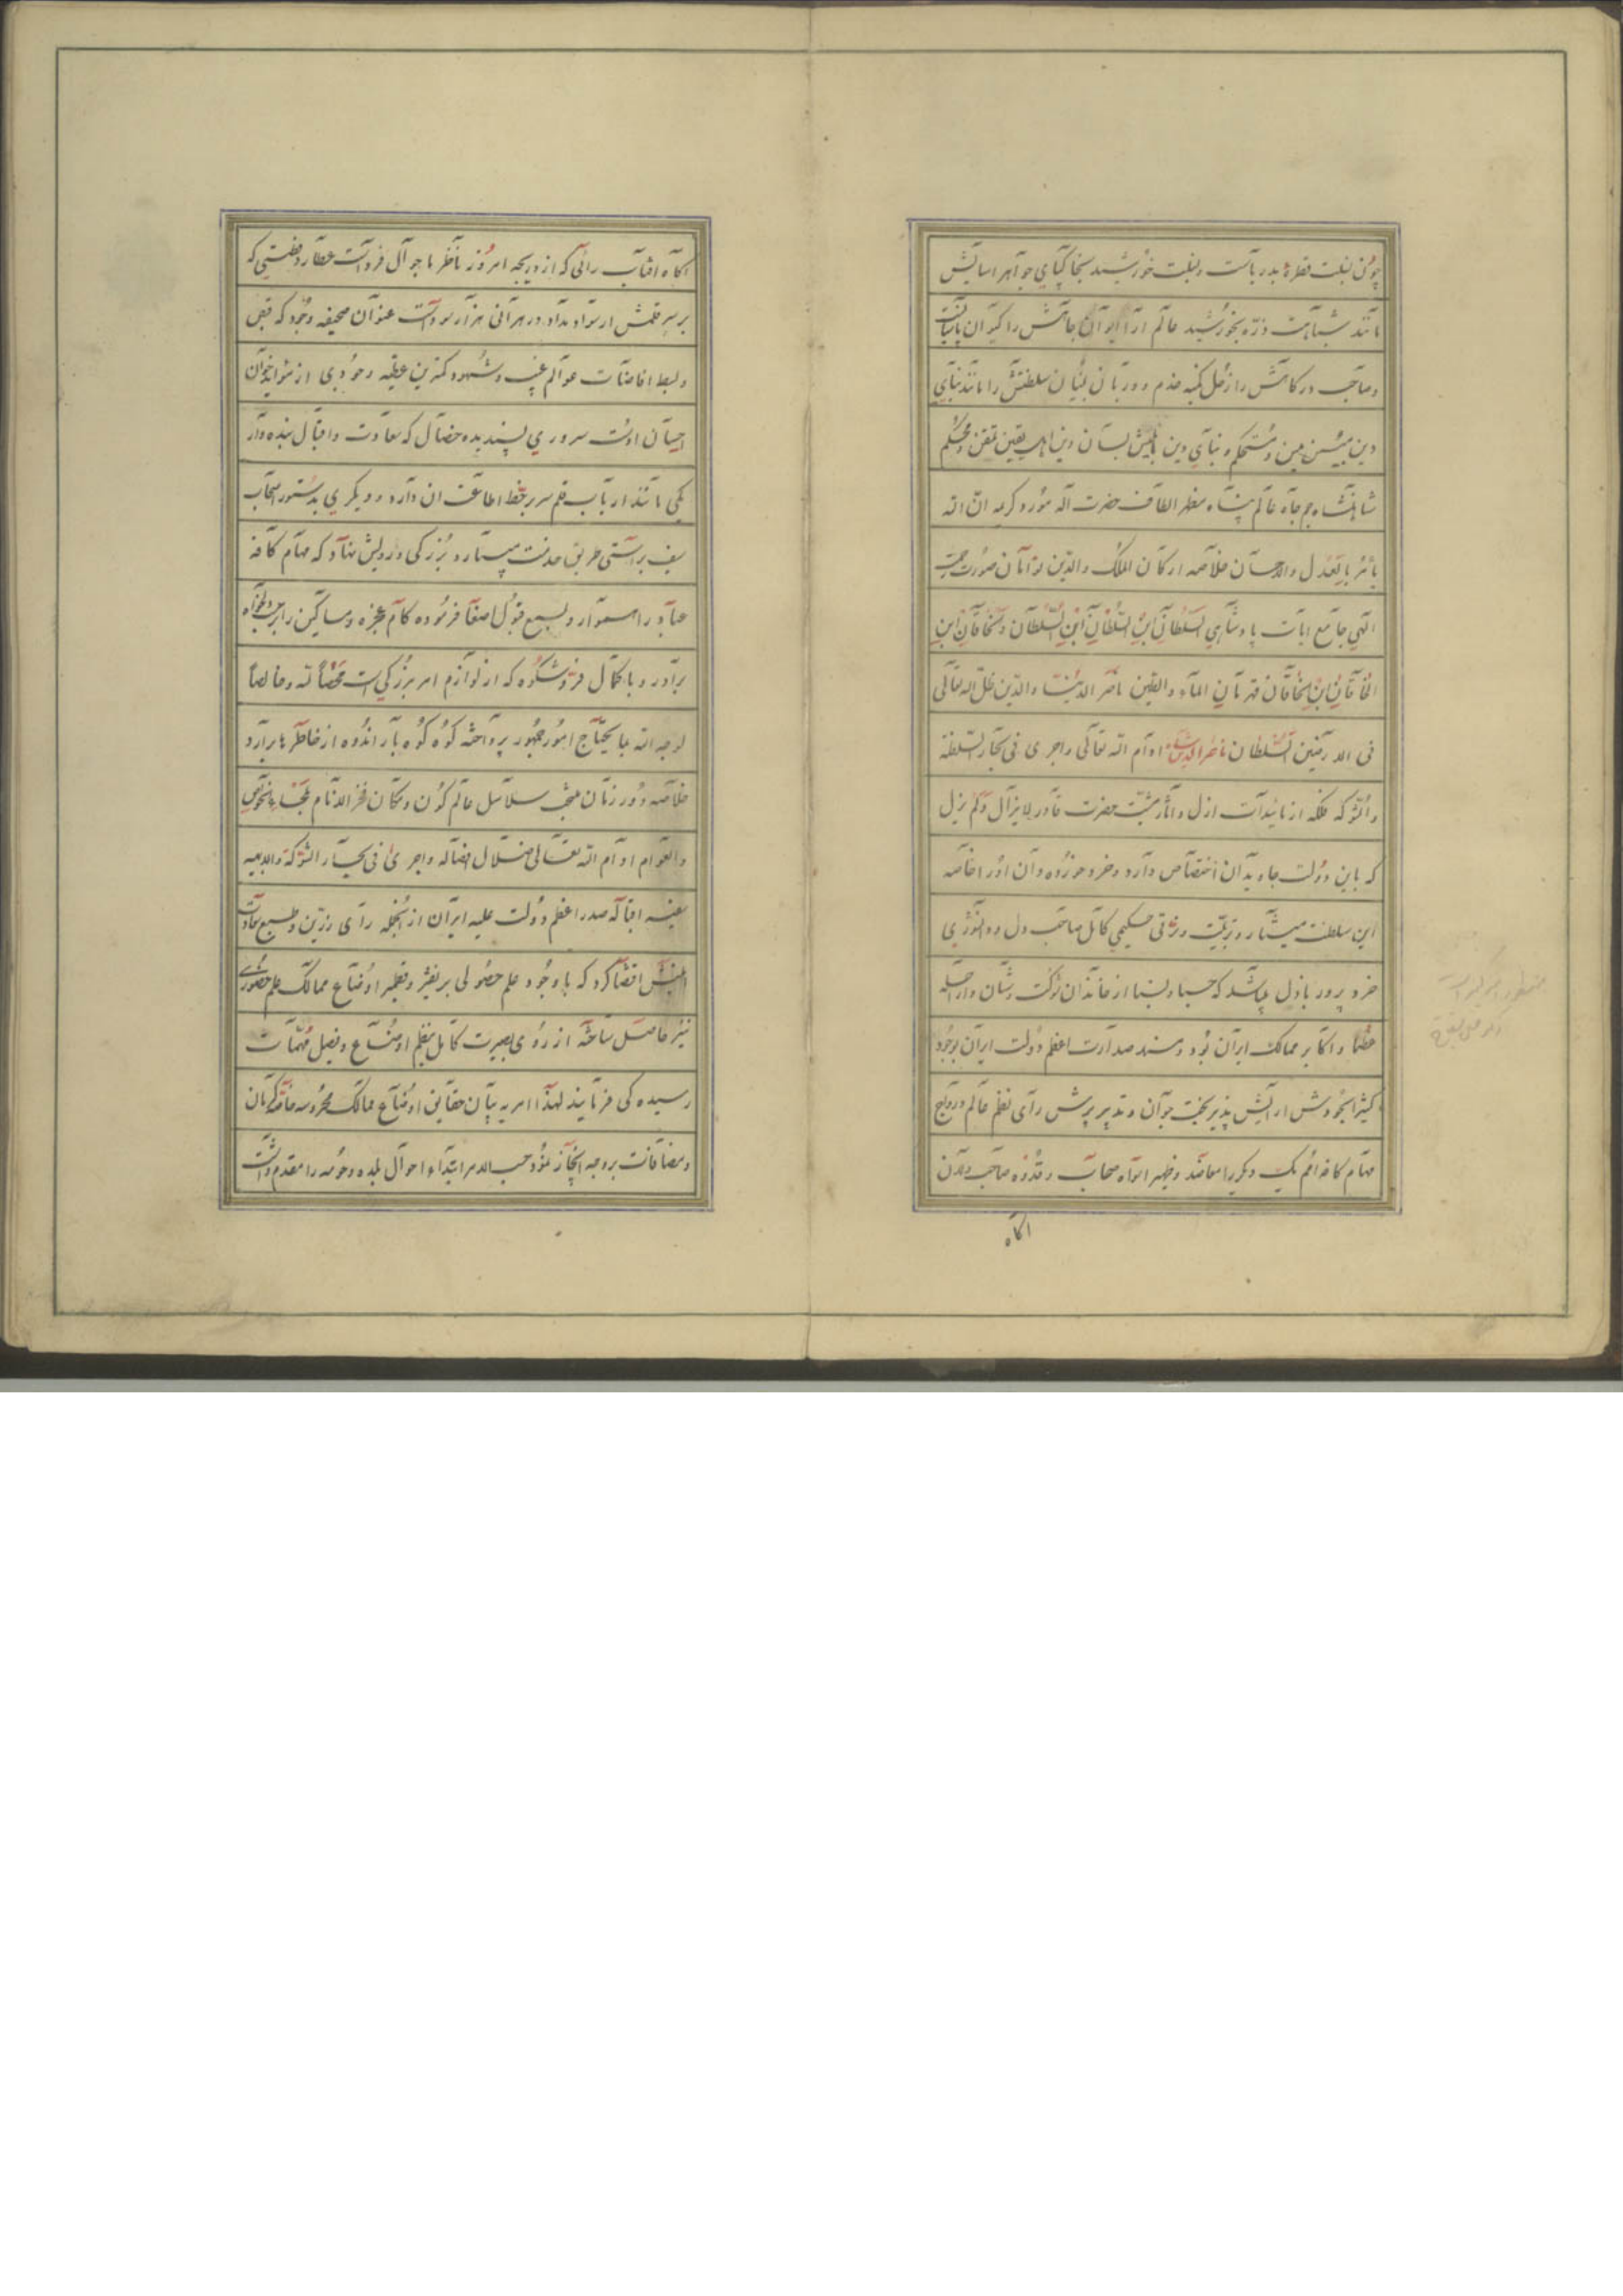 چون نسبت قطره بدریاست و نسبت خورشید بخاکپای جواهر اسایش
مانند شباهت ذره بخورشید عالم ارا ایوان جاهش را کیوان پاسبانست
و صاحب درگاهش را زحل کمینه خدم و دربان بنیان سلطنتش را مانند بنای
دین مبین متین و مستحکم و بنای دین بسان دین اهل یقین متقن و محکم
شاهنشاه جم جاه عالم پناه مظهر الطاف حضرت آله مورد کریمه ان الله
یامر بالعدل والاحسان خلاصه ارکان الملک والدین توامان صورت رحمت
الهی جامع ایات پادشاهی السلطان ابن السلطان ابن السلطان و الخاقان ابن
الخاقان ابن الخاقان قهرمان الماء والطین ناصر الدنیا والدین ظل اله تعالی
فی الارضین السلطان ناصرالدین شاه ادام الله تعالی واجری فی بحار السلطنة
والشوکه فلکه از تائیدات ازل و اثار مشیت حضرت قادر لایزال ولم یزل
که باین دولت جاوید آن اختصاص دارد و خرد خورده دان انرا خاصه
این سلطنت میشمارد تربیت و ترقی حکیمی کامل صاحب دل و دانشوری
خرد پرور باذل میباشد که حسبا و نسبا از خاندان شوکت و شان و از اجله
عظما و اکابر ممالک ایران بود و مسند صدارت اعظم دولت ایران بوجود
کثیر الجودش ارایش پذیر بخت جوان و تدبیر پیرش رای نظم عالم و رواج
مهام کافه امم یک دیگر را معاضد و ظهیر افواه صحاب و قدوه صاحب دلان
اگاه
اگاه افتاب رائی که از دریچه امروز ناظر ماجرای فرداست عطارد فطنتی که
بر سر قلمش از سواد مداد در هر آنی هزار سوداست عنوان صحیفه وجود که قبض
و بسط افاضات عوالم غیب و شهود کمترین عطیه وجودی از موائد خوان
احسان اوست سروری پسندیده خصال که سعادت و اقبال بنده وار
یکی مانند ارباب قلم سر بر خط اطاعت ان دارد و دیگری بدستور اصحاب
سیف براستی طریق خدمت میسپارد بزرگی درویش نهاد که مهام کافه
عباد را هموار و بسمع قبول اصغا فرموده کام عجزه و مساکین را بر دلخواه
برآورد و با کمال فر و شکوه که از لوازم امر بزرگی است محضا لله و خالصا
لوجه الله بمایحتاج امور جمهور پرداخته کوه کوه بار اندوه از خاطرها برآرد
خلاصه دور زمان منتخب سلاسل عالم کون و مکان فخر الانام
والعوام ادام الله تعالی ضلال افضاله واجری فی بحار الشوکة والابهه
سفینه اقباله صدر اعظم دولت علیه ایران از انجمله رای رزین و طبع سعادت
اقتضا کرد که باوجود علم حصولی بر نقیر و قطمیر اوضاع ممالک علم حضوری
نیز حاصل ساخته از روی بصیرت کامل بنظم اوضاع و فیصل مهمات
رسیده گی فرمایند لهذا امر به بیان حقایق اوضاع ممالک محروسه خاصه کرمان
و مضافات بر وجه ایجاز نمود حسب الامر ابتداء احوال بلده و حومه را مقدم داشت